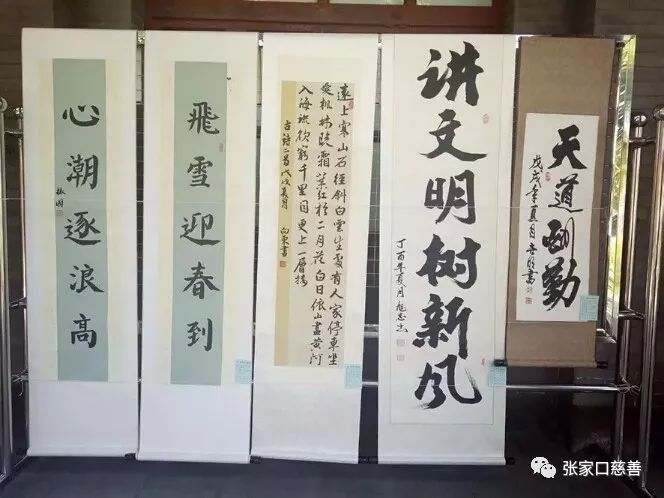 天道酬勤
戊戌年夏月
讲文明树新风
丁酉年夏月
遠上寒山石徑斜白雲生處有人家停車坐
愛楓林晚霜葉红於二月花白日依山盡黄河
入海流欲窮千里目更上一層樓
古詩二首戊戌夏月 向東書
飛雪迎春到
心潮逐浪高
张家口慈善